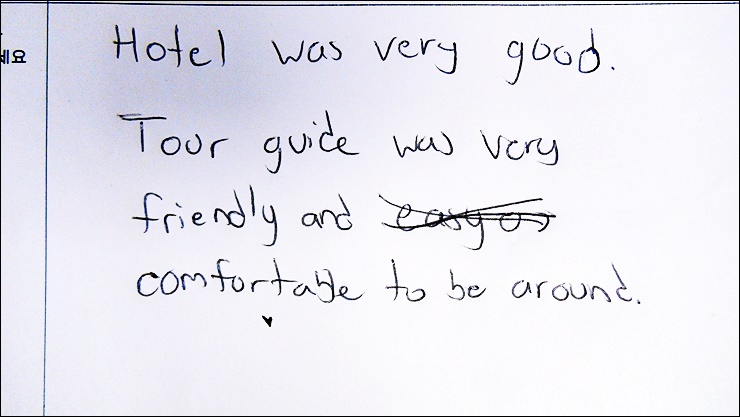 세요
Hotel was very good.
Tour guide was very
friendly and
comfortable to be around.